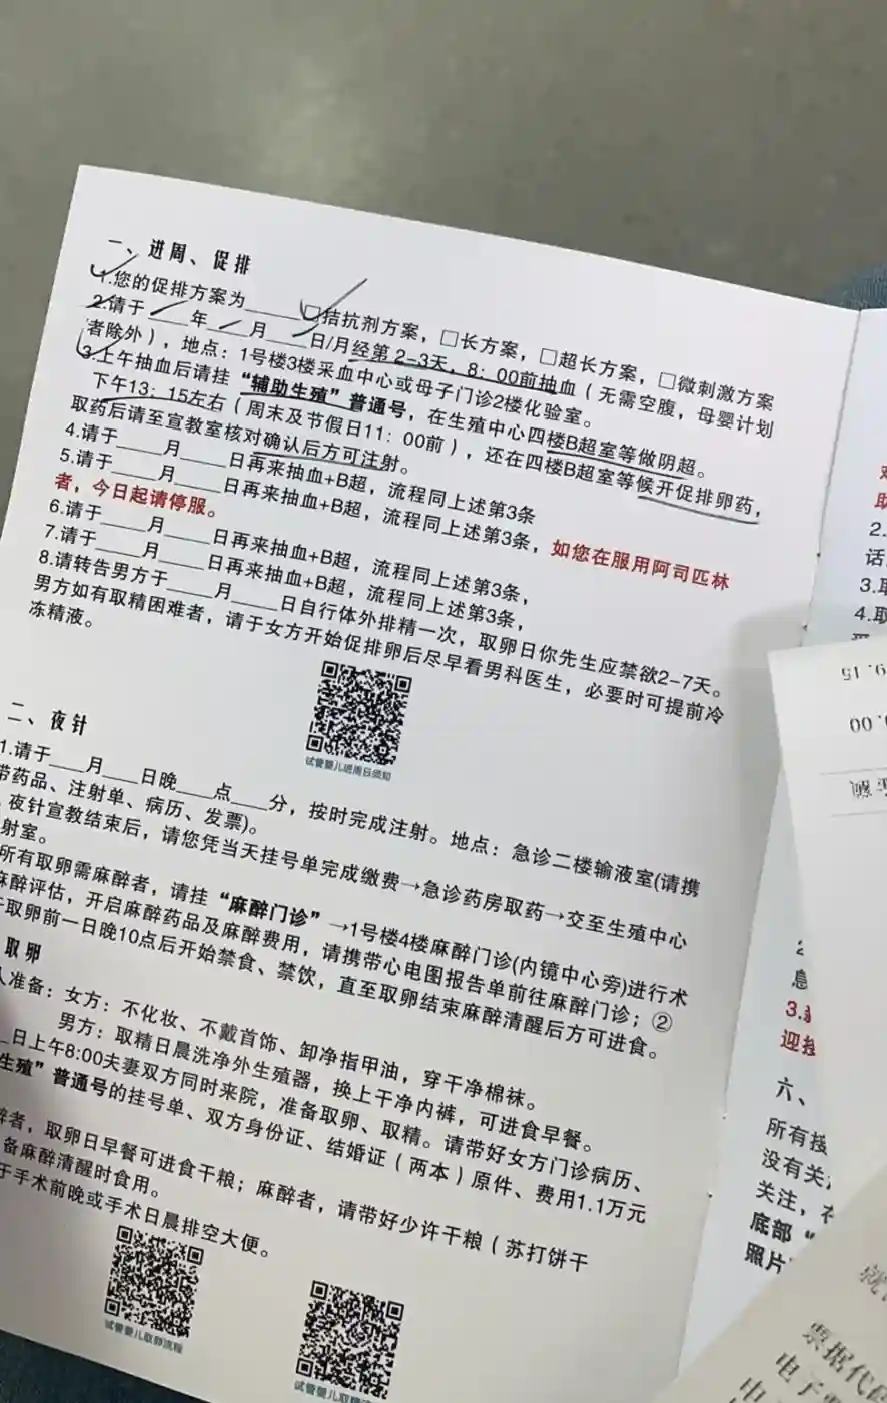 一、进周、促排
1.您的促排方案为______□拮抗剂方案，□长方案，□超长方案，□微刺激方案
2.请于____年____月____日/月经第2-3天，8：00前抽血（无需空腹，母婴计划
者除外），地点：1号楼3楼采血中心或母子门诊2楼化验室。
3.上午抽血后请挂“辅助生殖”普通号，在生殖中心四楼B超室等做阴超。
下午13：15左右（周末及节假日11：00前），还在四楼B超室等候开促排卵药，
取药后请至宣教室核对确认后方可注射。
4.请于____月____日再来抽血+B超，流程同上述第3条
5.请于____月____日再来抽血+B超，流程同上述第3条，如您在服用阿司匹林
者，今日起请停服。
6.请于____月____日再来抽血+B超，流程同上述第3条，
7.请于____月____日再来抽血+B超，流程同上述第3条，
8.请转告男方于____月____日自行体外排精一次，取卵日你先生应禁欲2-7天。
男方如有取精困难者，请于女方开始促排卵后尽早看男科医生，必要时可提前冷
冻精液。
试管婴儿进周日须知
二、夜针
1.请于___月___日晚___点___分，按时完成注射。地点：急诊二楼输液室(请携
带药品、注射单、病历、发票)。
夜针宣教结束后，请您凭当天挂号单完成缴费→急诊药房取药→交至生殖中心
射室。
所有取卵需麻醉者，请挂“麻醉门诊”→1号楼4楼麻醉门诊(内镜中心旁)进行术
麻醉评估，开启麻醉药品及麻醉费用，请携带心电图报告单前往麻醉门诊；②
于取卵前一日晚10点后开始禁食、禁饮，直至取卵结束麻醉清醒后方可进食。
取卵
人准备：女方：不化妆、不戴首饰、卸净指甲油，穿干净棉袜。
男方：取精日晨洗净外生殖器，换上干净内裤，可进食早餐。
日上午8:00夫妻双方同时来院，准备取卵、取精。请带好女方门诊病历、
生殖”普通号的挂号单、双方身份证、结婚证（两本）原件、费用1.1万元
醉者，取卵日早餐可进食干粮；麻醉者，请带好少许干粮（苏打饼干
备麻醉清醒时食用。
于手术前晚或手术日晨排空大便。
试管婴儿取卵流程
试管婴儿取精
助
2.
话
3.
4.取
2
急
3.
迎接
六、
所有接
没有关
关注，在
底部“
照片
9.15
.00
票据代码
电子